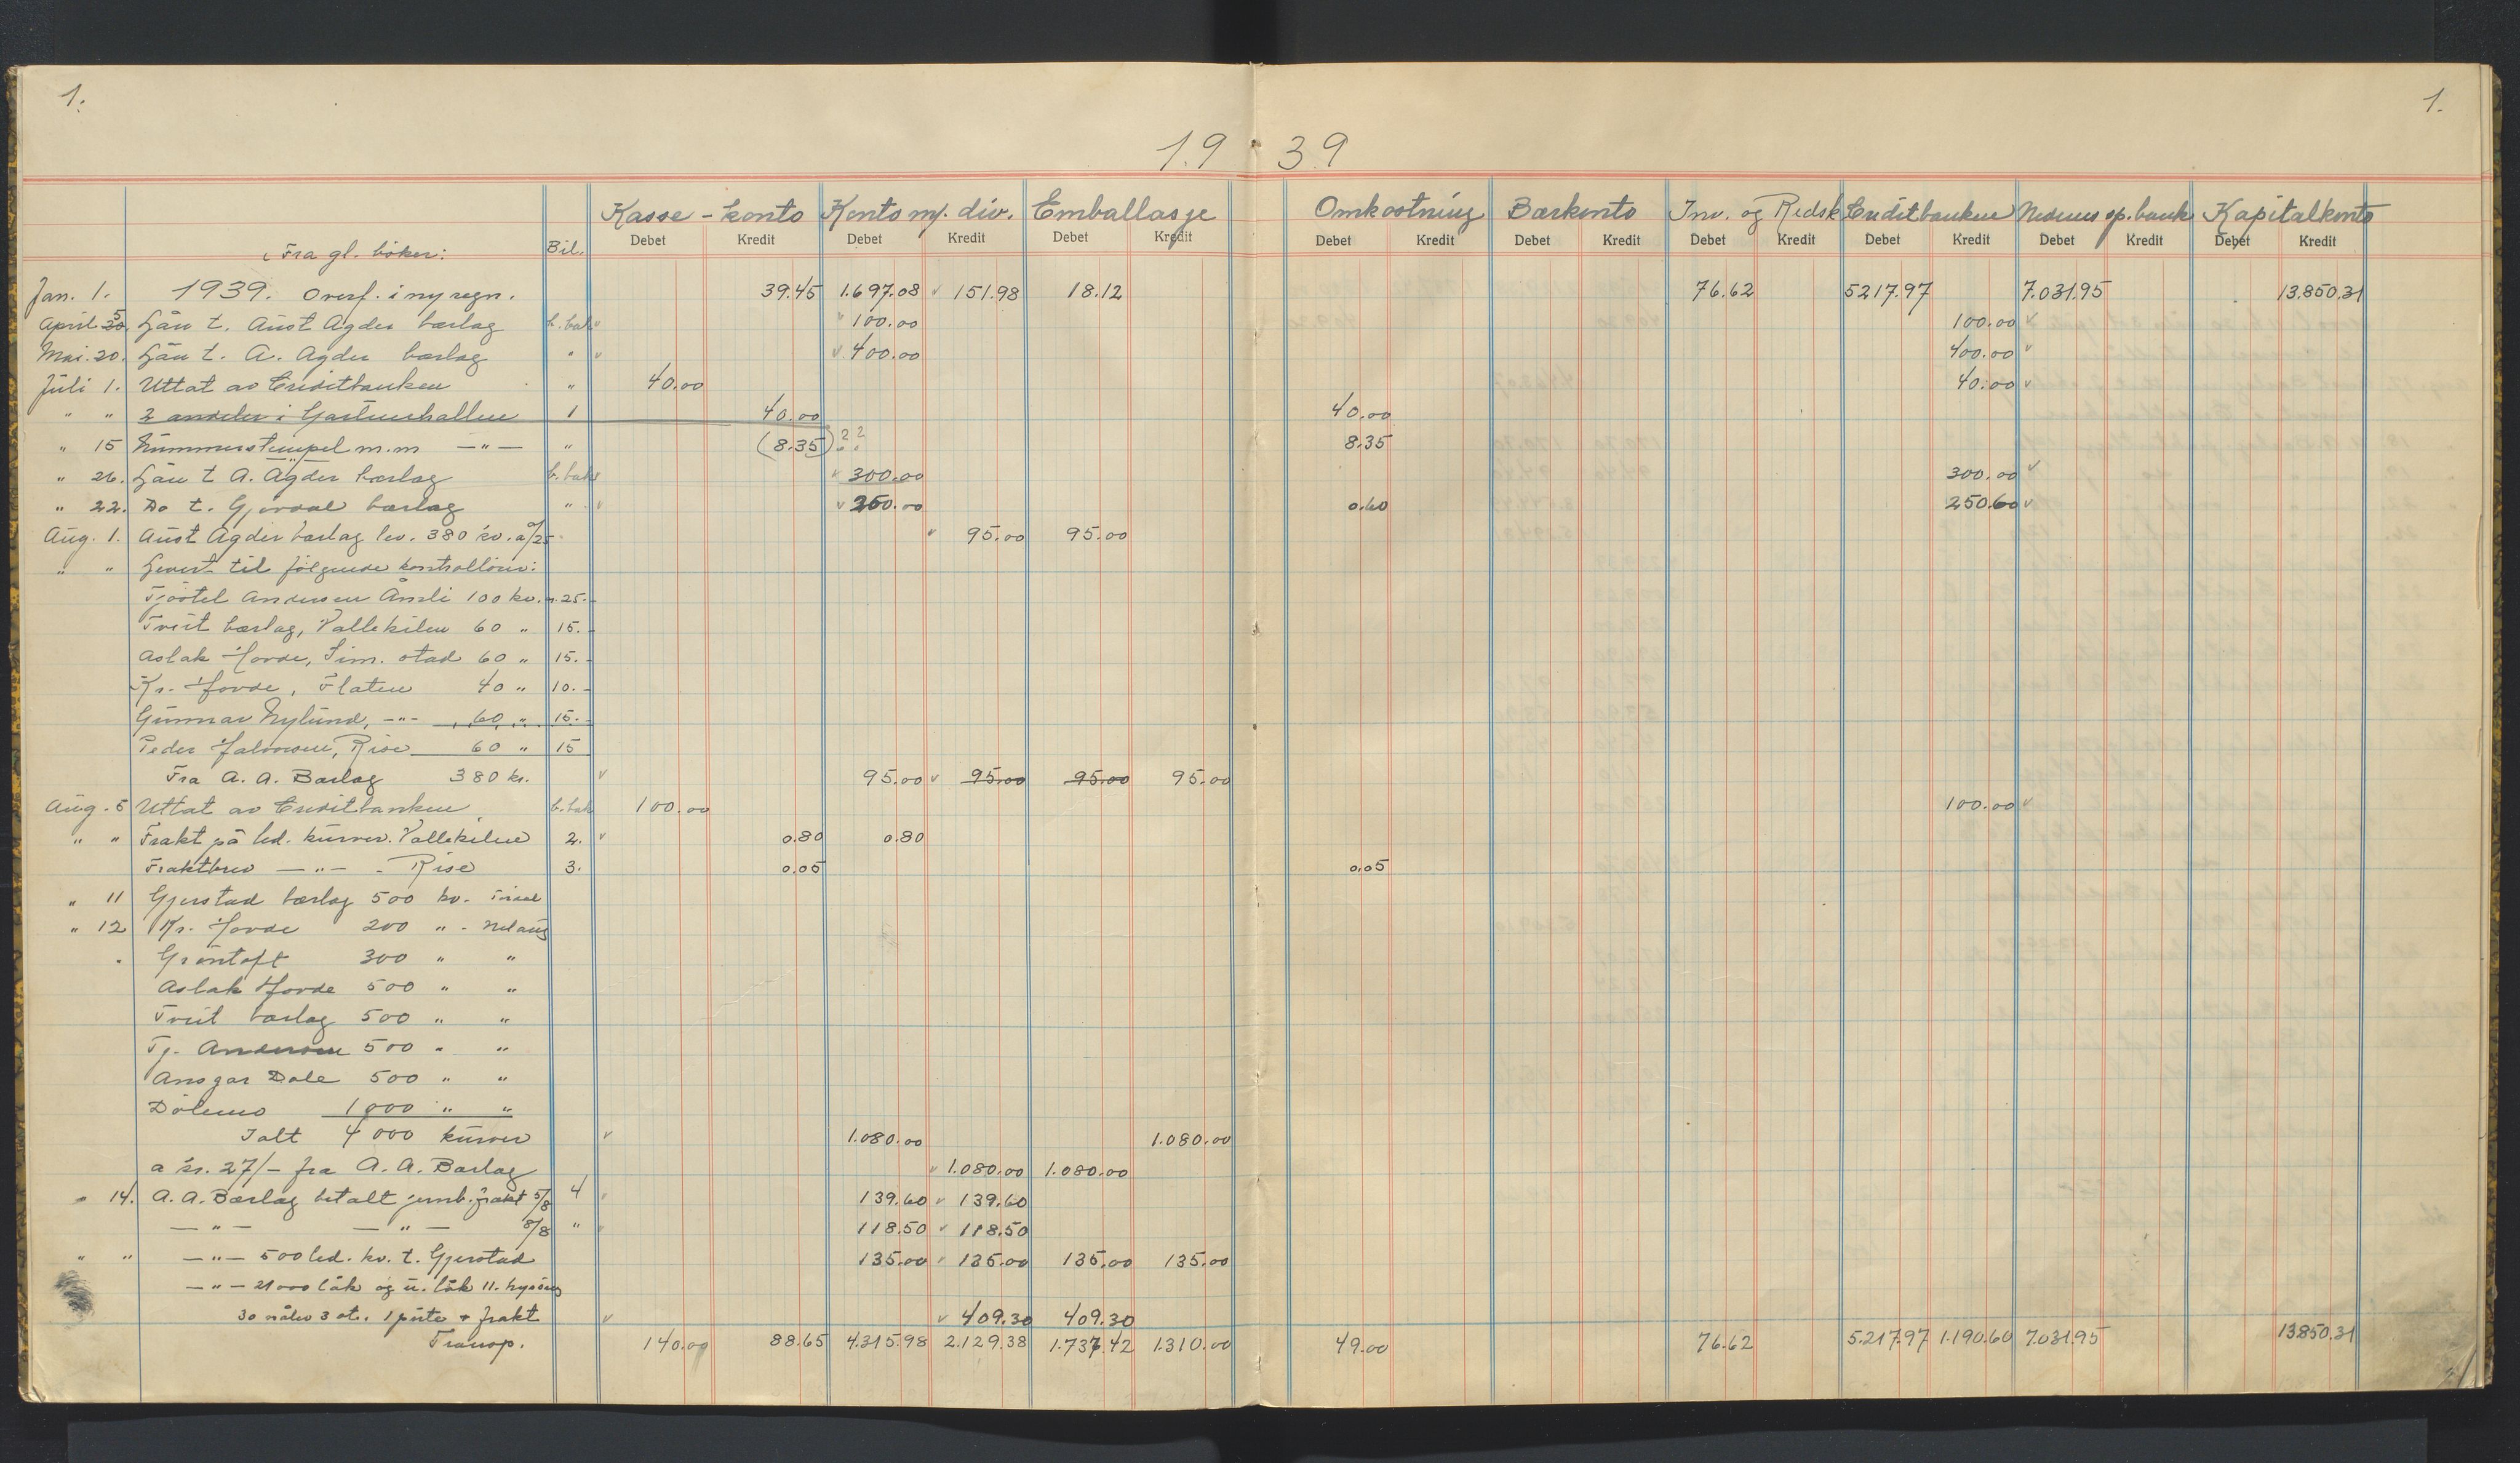 1. 1.
19 39
Kasse-konto Konto m/. div. Emballasje Omkostning Bærkonto Inv. og Redsk. Creditbanken Nedenes sp.bank Kapitalkonto
Debet Kredit Debet Kredit Debet Kredit Debet Kredit Debet Kredit Debet Kredit Debet Kredit Debet Kredit Debet Kredit
Fra gl. bøker: Bil.
Jan. 1. 1939. Overf. i ny regn. 39.45 1.697.08 151.98 18.12 76.62 5217.97 7.031.95 13.850.31
April Lån t. Aust Agder bærlag b. bok 100.00 100.00
Mai. 20. Lån t. A. Agder bærlag " 400.00 400.00
Juli 1. Uttat av Creditbanken " 40.00 40.00
" " 2 andeler i Gartnerhallen 1 40.00 40.00
" 15 Nummerstempel m.m —"— " (8.35) ?? 8.35
" 26. Lån t A. Agder bærlag b. bok 300.00 300.00
" 22. Do t. Gjerdal bærlag " 250.00 0.60 250.60
Aug. 1. Aust Agder bærlag lev. 380 kv. a /25 95.00 95.00
" " Levert til følgende kontrollører:
Tjøstel Andersen Åmli 100 kv. 25.-
Tveit bærlag, Vallekilen 60 " 15.-
Aslak Hovde, Sim. stad 60 " 15.-
Kr. Hovde, Flaten 40 " 10.-
Gunnar Nylund, -"- 60 " 15.-
Peder Halvorsen, Rise 60 " 15
Fra A. A. Bærlag 380 kr. 95.00 95.00 95.00 95.00
Aug. 5 Uttat av Creditbanken b. bok 100.00 100.00
" " Frakt på led. kurver. Vallekilen 2. 0.80 0.80
Fraktbrev —"— - Rise 3. 0.05 0.05
" 11 Gjerstad bærlag 500 kv.
" 12 Kr. Hovde 200 " - Nelaug
Grøntoft 300 " "
Aslak Hovde 500 " "
Tveit bærlag 500 " "
Tj. Andersen 500 " "
Ansgar Dale 500 " "
Dølemo 1000 " "
Ialt 4000 kurver 1.080.00 1.080.00
a kr. 27/- fra A. A. Bærlag 1.080.00 1.080.00
" 14. A. A. Bærlag betalt jernb. frakt 5/8 4 139.60 139.60
—"— —"— 8/8 " 118.50 118.50
" " —"— 500 led. kv. t. Gjerstad 135.00 135.00 135.00 135.00
—"— 21000 låk og u. låk 11.
30 nåler 3 st. 1 + frakt 409.30 409.30
Transp. 140.00 88.65 4.315.98 2.129.38 1.737.42 1.310.00 49.00 76.62 5.217.97 1.190.60 7.031.95 13.850.31